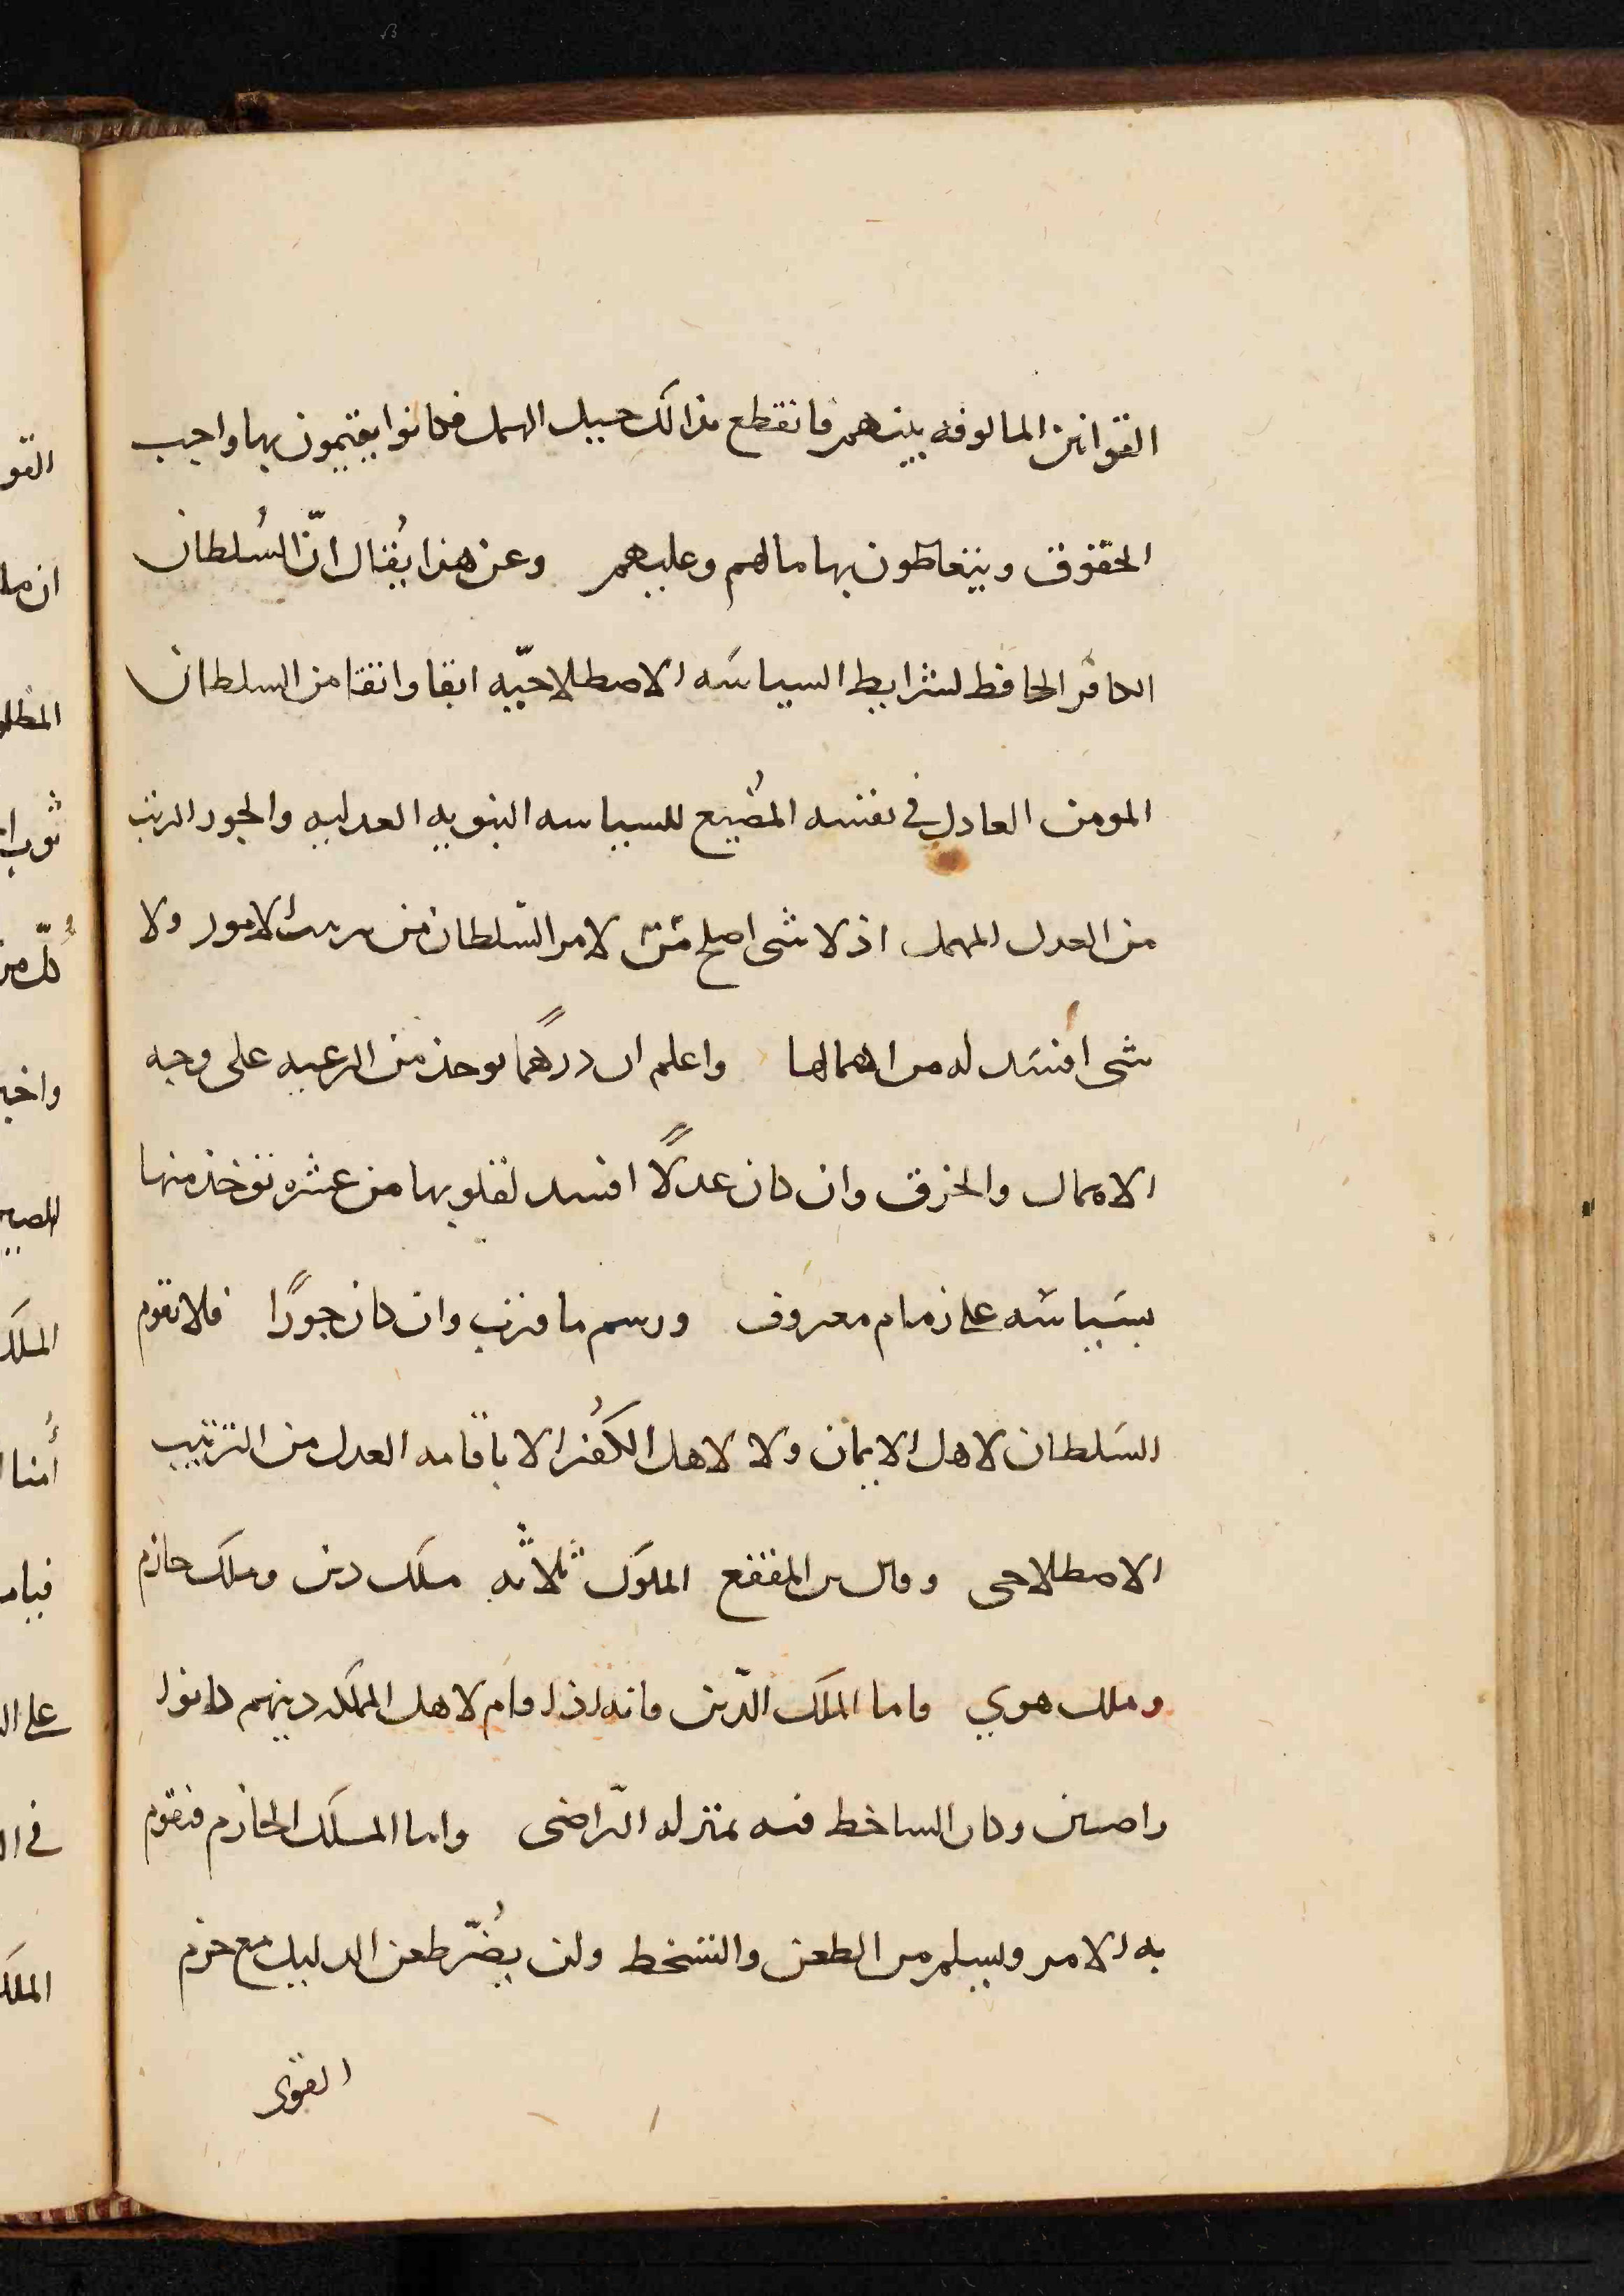 القوانين المالوفه بينهم فانقطع بذالك حبيل الهمل فكانوا يقيمون بها واجب
الحقوق ويتعاطون بها مالهم وعليهم وعن هذا يُقال انّ السُلطان
الكافر الحافظ لشرايط السياسه الاصطلاحيّه ابقا واتقا من السلطان
المومن العادل في نفسه المضُيع للسياسه النبويه العدليه والجور المرتب
من العدل المهمل اذ لا شى اصلح لامر السُلطان من ترتيب الامور ولا
شى افسَد له من اهمالها واعلم ان درهمًا يوخذ من الرعيه على وجه
الاهمال والخرق وان كان عدلًا افسد لقلوبها من عشره توخذ منها
بسَياسَه على زمام معروف ورسم مالوف وان كان جورًا فلا يقوم
السَلطان لاهل الايمان ولا لاهل الكفُر الا باقامه العدل من الترتيب
الاصطلاحى وقال بن المقفع الملوك ثلاثه ملك دين وملك حازم
وملك هوي فاما الملك الدّين فانه اذا اقام لاهل المملكه دينهم كانوا
راضين وكان الساخط فيه بمنزله الرّاضى واما الملك الحازم فيقوم
به الامر ويسلم من الطعن والتسَخط ولن يضُرّ طعن الدليل مع حزم
القوى
القو
ثوب
كُلّ من
الملك
على ال
في ال
الملك